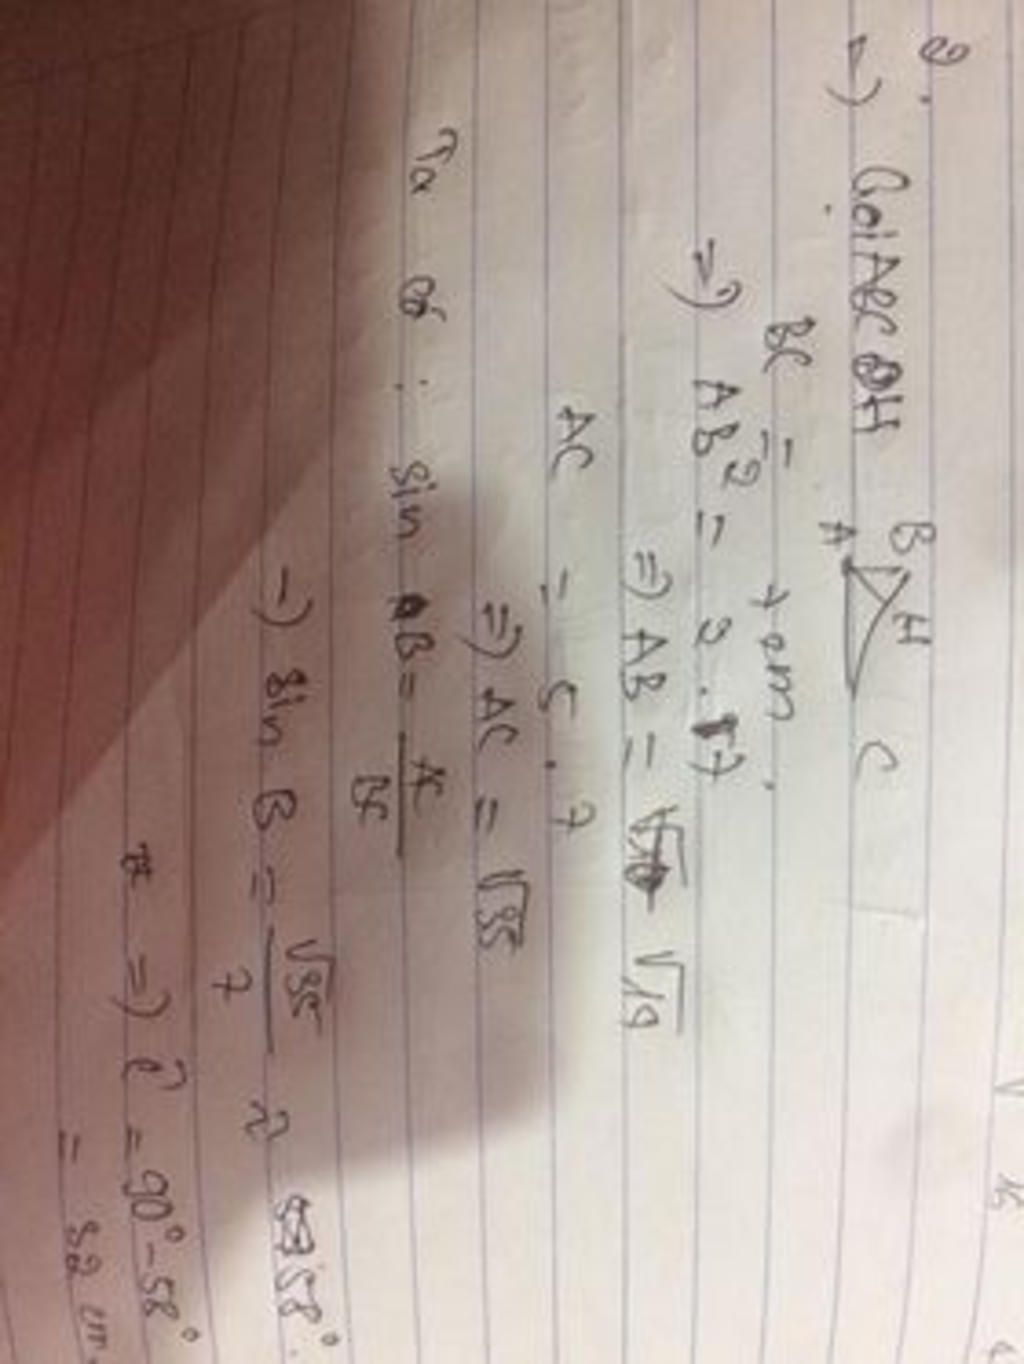 2.
a) Gọi ABC ĐH
B H
A C
BC = 7 cm.
=) AB² = 2.7
=) AB = √14
AC = 5.7
=) AC = √35
Ta có : sin B = AC/BC
=) sin B = √35/7 ≈ 58°.
=) Ĉ = 90° - 58°
= 32 cm.